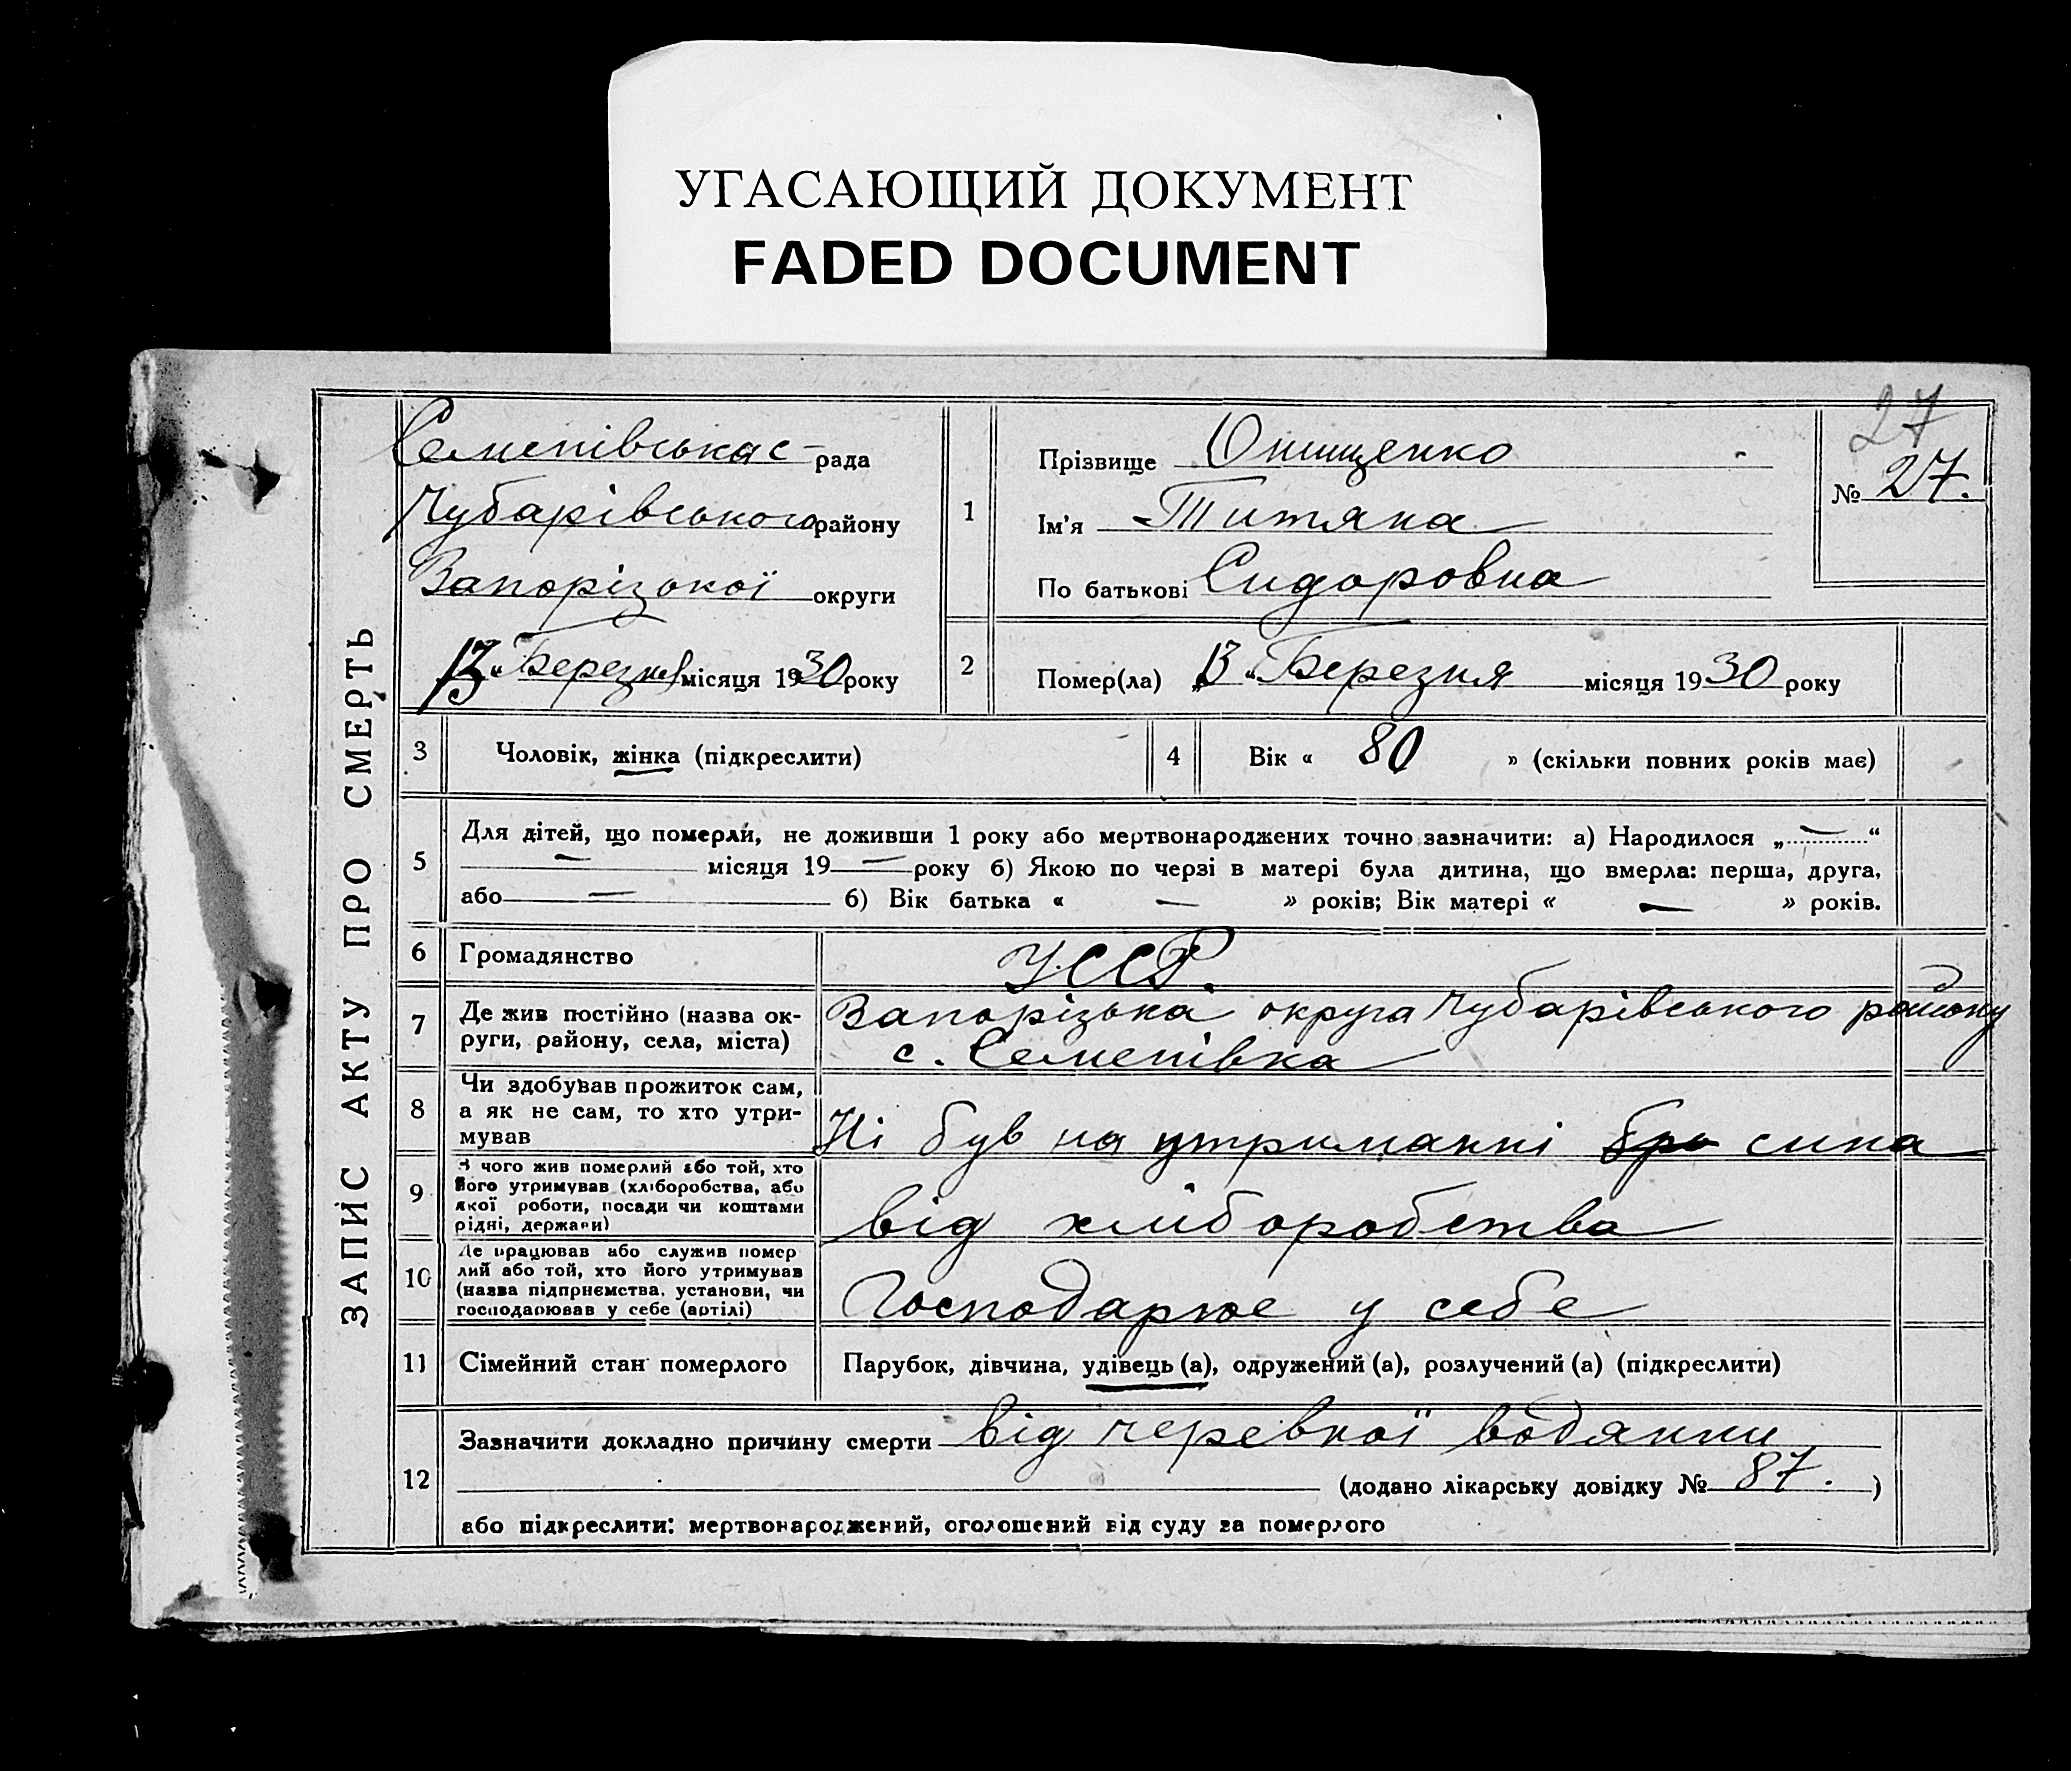 УГАСАЮЩИЙ ДОКУМЕНТ
FADED DOCUMENT
ЗАПИС АКТУ ПРО СМЕРТЬ
Семенівська с- рада
Чубарівського району
Запорізької округи
13 „ Березня місяця 1930 року
1
Прізвище Онищенко
Ім'я Титяна
По батькові Сидоровна
27
№ 27.
2
Помер(ла) „13 “ Березня місяця 1930 року
3 Чоловік, жінка (підкреслити)
4 Вік « 80 » (скільки повних років має)
5
Для дітей, що померли, не доживши 1 року або мертвонароджених точно зазначити: а) Народилося „ — “
— місяця 19 — року б) Якою по черзі в матері була дитина, що вмерла: перша, друга,
або — б) Вік батька « — » років; Вік матері « — » років.
6 Громадянство УССР.
7 Де жив постійно (назва ок-
руги, району, села, міста)
Запорізька округа Чубарівського району
с. Семенівка
8 Чи здобував прожиток сам,
а як не сам, то хто утри-
мував
Ні був на утриманні сина
9 З чого жив померлий або той, хто
його утримував (хліборобства, або
якої роботи, посади чи коштами
рідні, держави)
від хліборобства
10 Де працював або служив помер
лий або той, хто його утримував
(назва підприємства, установи, чи
господарював у себе (артілі)
Господарює у себе
11 Сімейний стан померлого Парубок, дівчина, удівець (а), одружений (а), розлучений (а) (підкреслити)
12
Зазначити докладно причину смерти від черевної водянки
(додано лікарську довідку № 87. )
або підкреслити: мертвонароджений, оголошений від суду за померлого